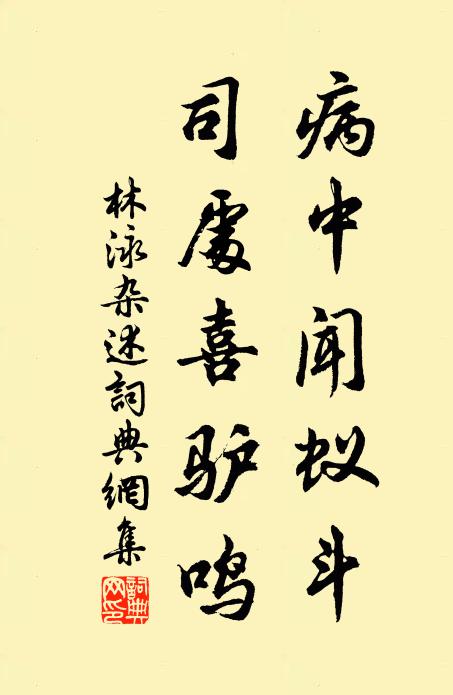 病中闻蚁斗
司處喜驴鸣
林泳杂述詞典網集
詞典网印